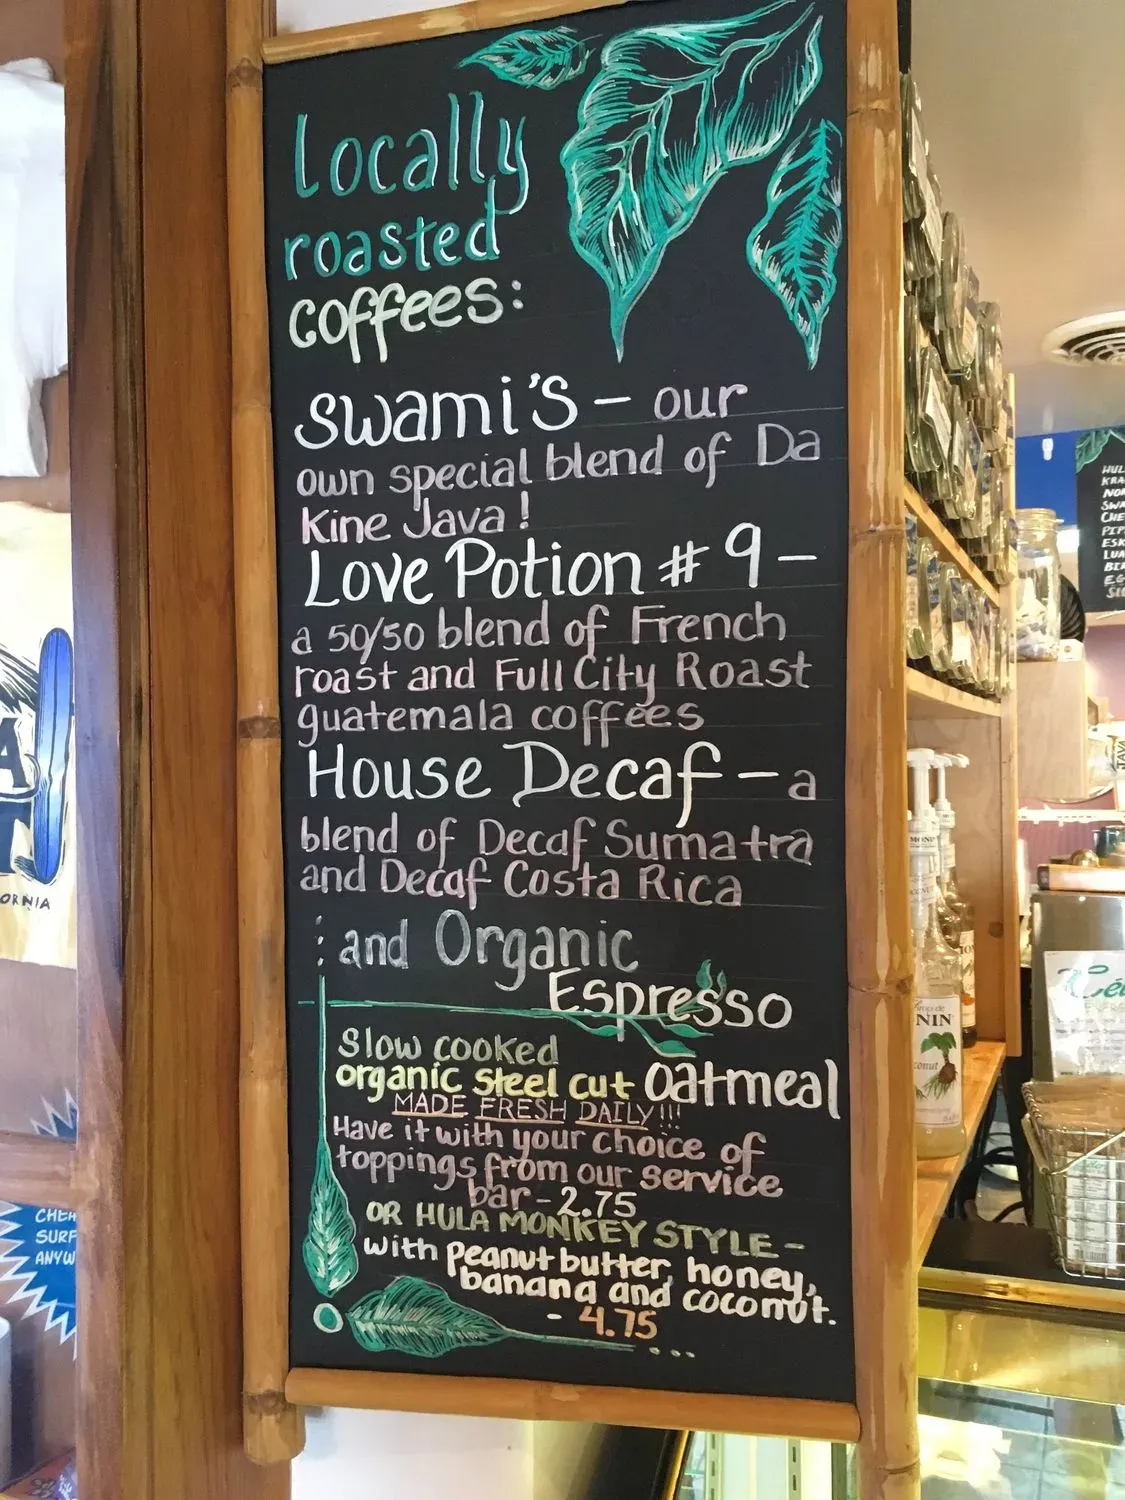 Locally
roasted
coffees:
Swami's - our
own special blend of Da
Kine Java!
Love Potion #9 -
a 50/50 blend of French
roast and Full City Roast
guatemala coffees
House Decaf - a
blend of Decaf Sumatra
and Decaf Costa Rica
: and Organic
Espresso
Slow cooked
organic steel cut oatmeal
MADE FRESH DAILY!!!
Have it with your choice of
toppings from our service
bar - 2.75
OR HULA MONKEY STYLE -
with peanut butter, honey,
banana and coconut.
- 4.75
...
NIN